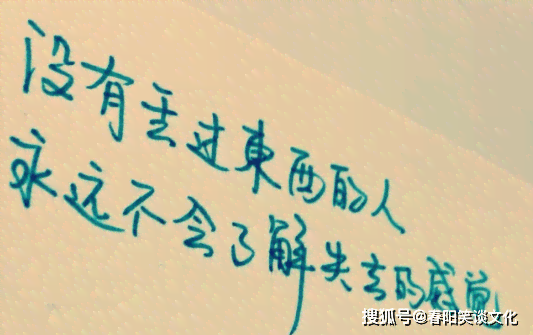 没有丢过東西的人
永远不会了解失去的感觉
搜狐号@春阳笑谈文化